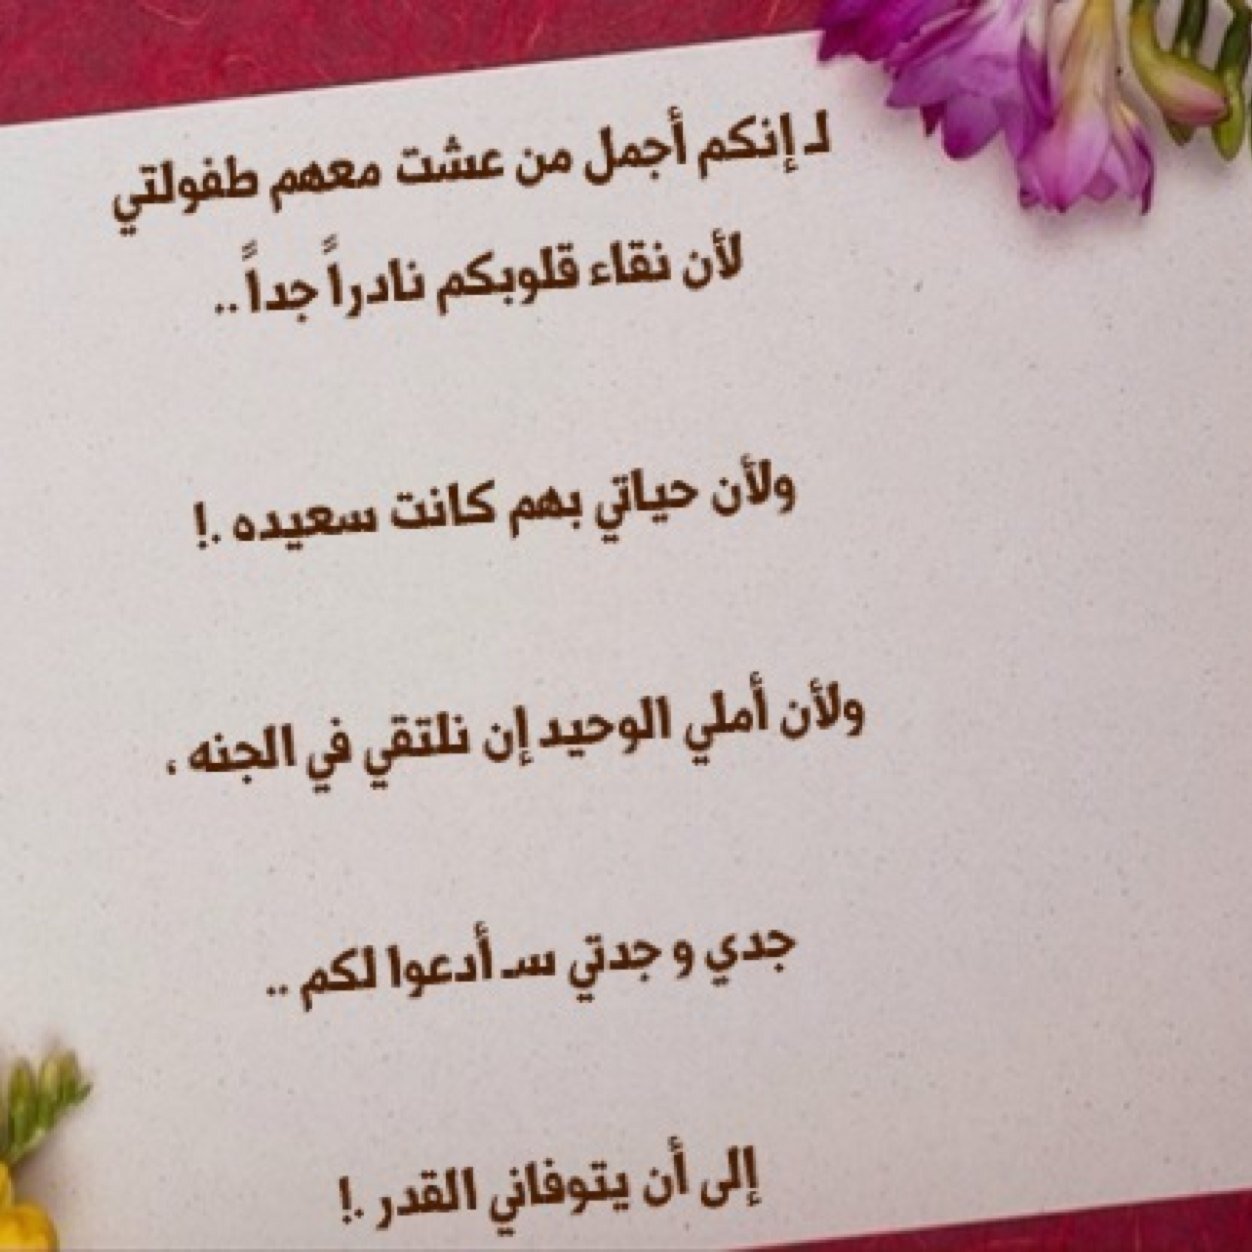 لـ إنكم أجمل من عشت معهم طفولتي
لأن نقاء قلوبكم نادراً جداً ..
ولأن حياتي بهم كانت سعيده .!
ولأن أملي الوحيد إن نلتقي في الجنه ،
جدي و جدتي سـ أدعوا لكم ..
إلى أن يتوفاني القدر .!